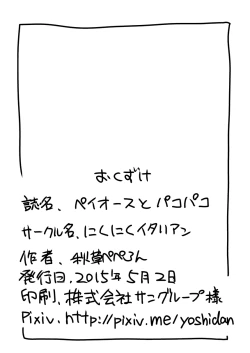 おくずけ
誌名、ペイオースとパコパコ
サークル名、にくにくイタリアン
作者、
発行日、2015年5月2日
印刷、株式会社サングループ様
Pixiv、http://pixiv.me/yoshidan